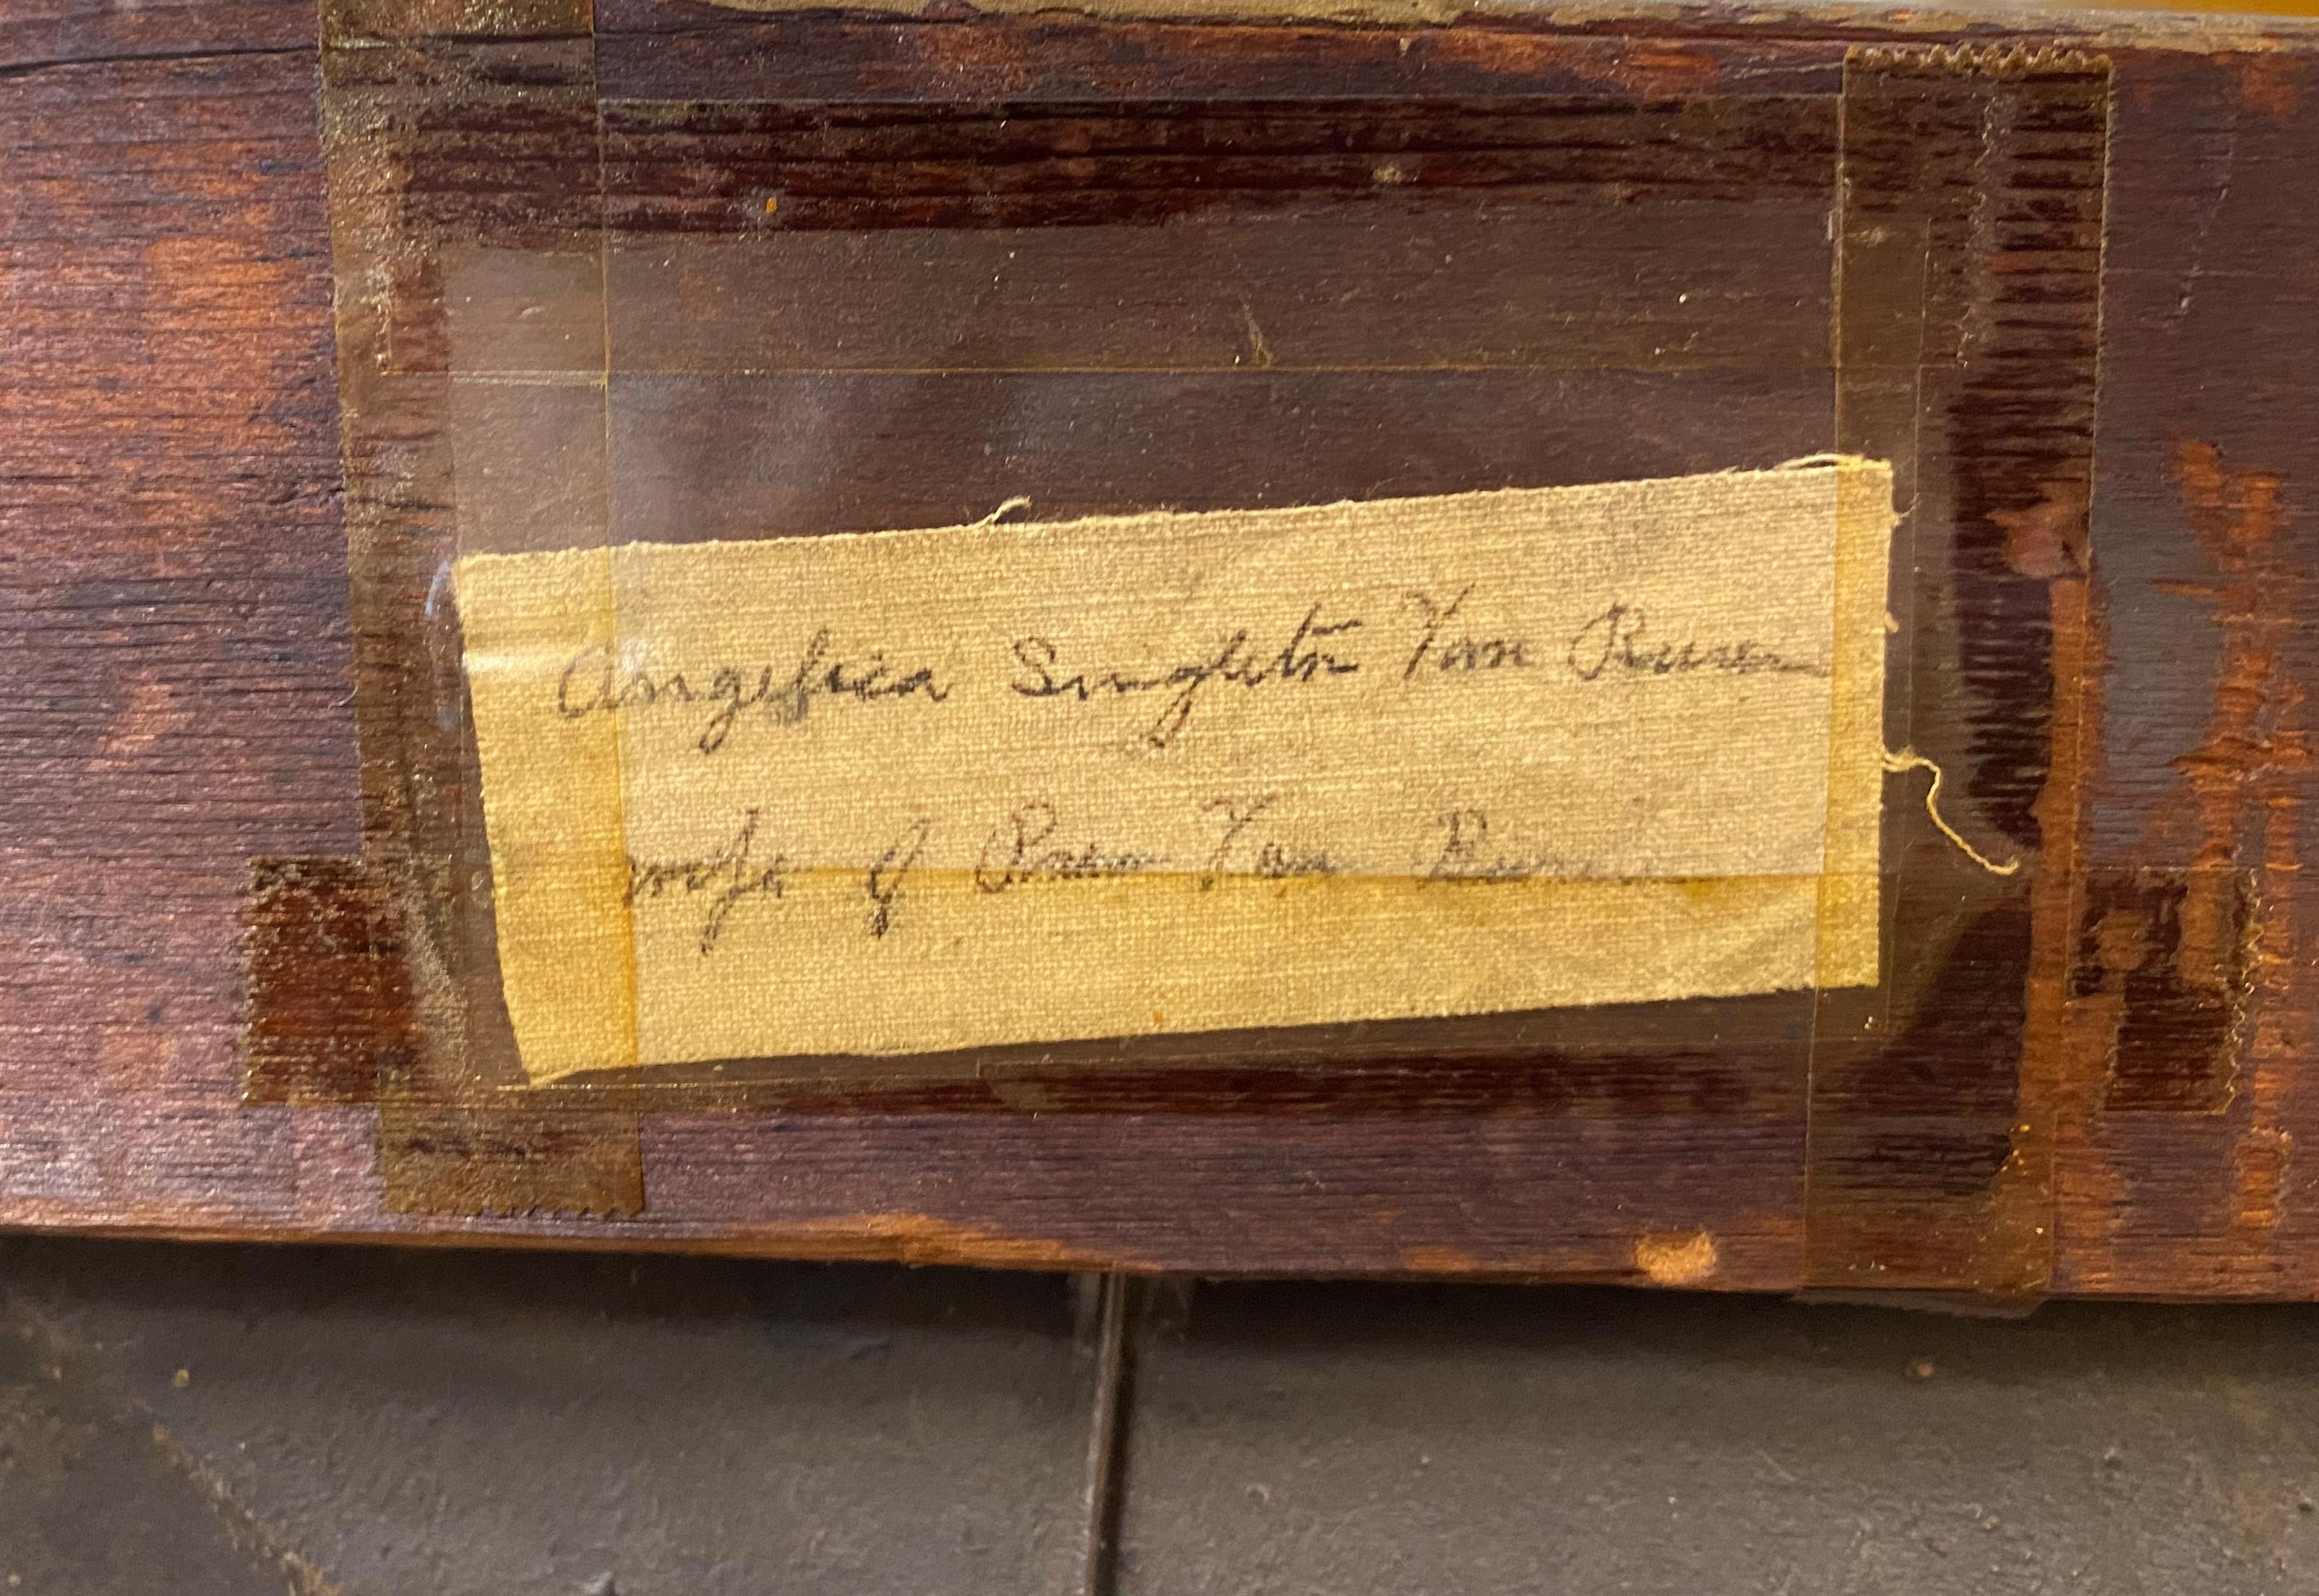 Angelica Singleton Van Buren
wife of Pres Van Buren